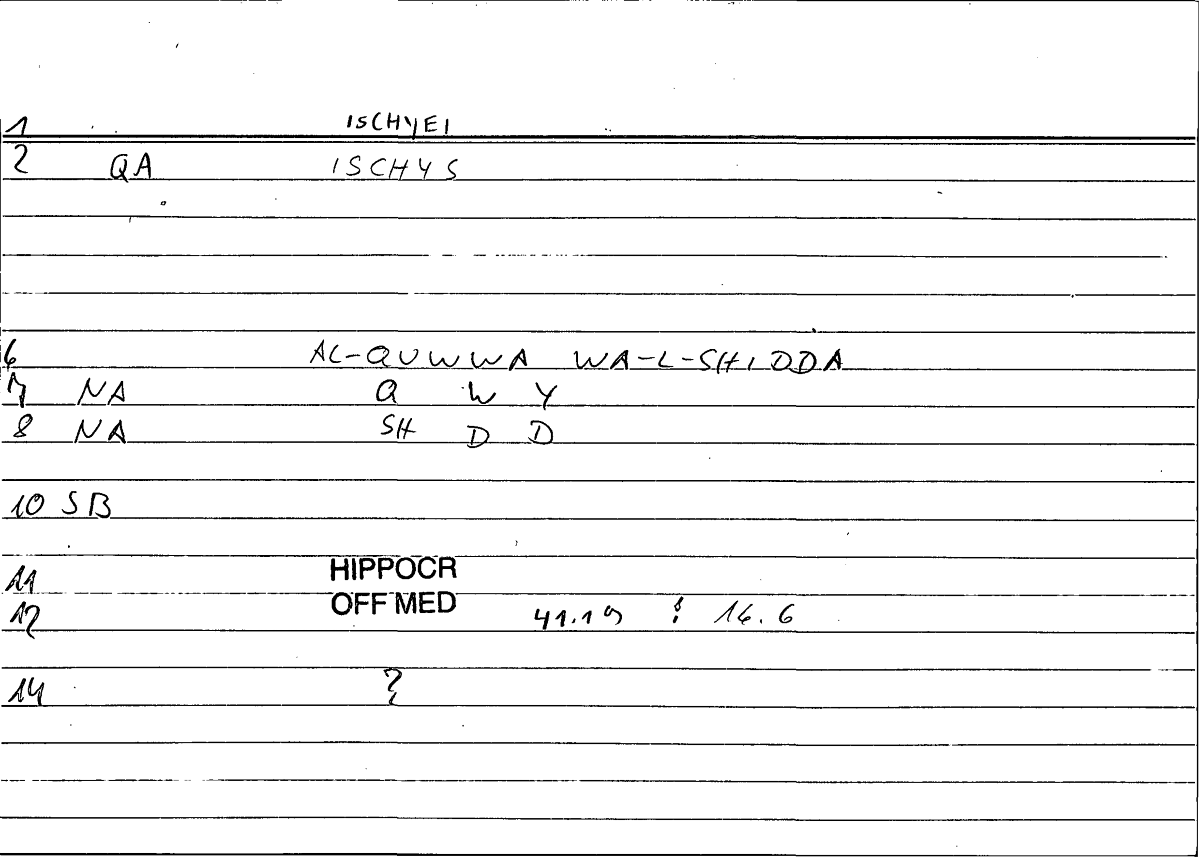 1 ISCHYEI
2 QA ISCHYS
6 AL-QUWWA WA-L-SHIDDA
7 NA Q W Y
8 NA SH D D
10 SB
11 HIPPOCR
12 OFF MED 41.19 : 16.6
14 ?